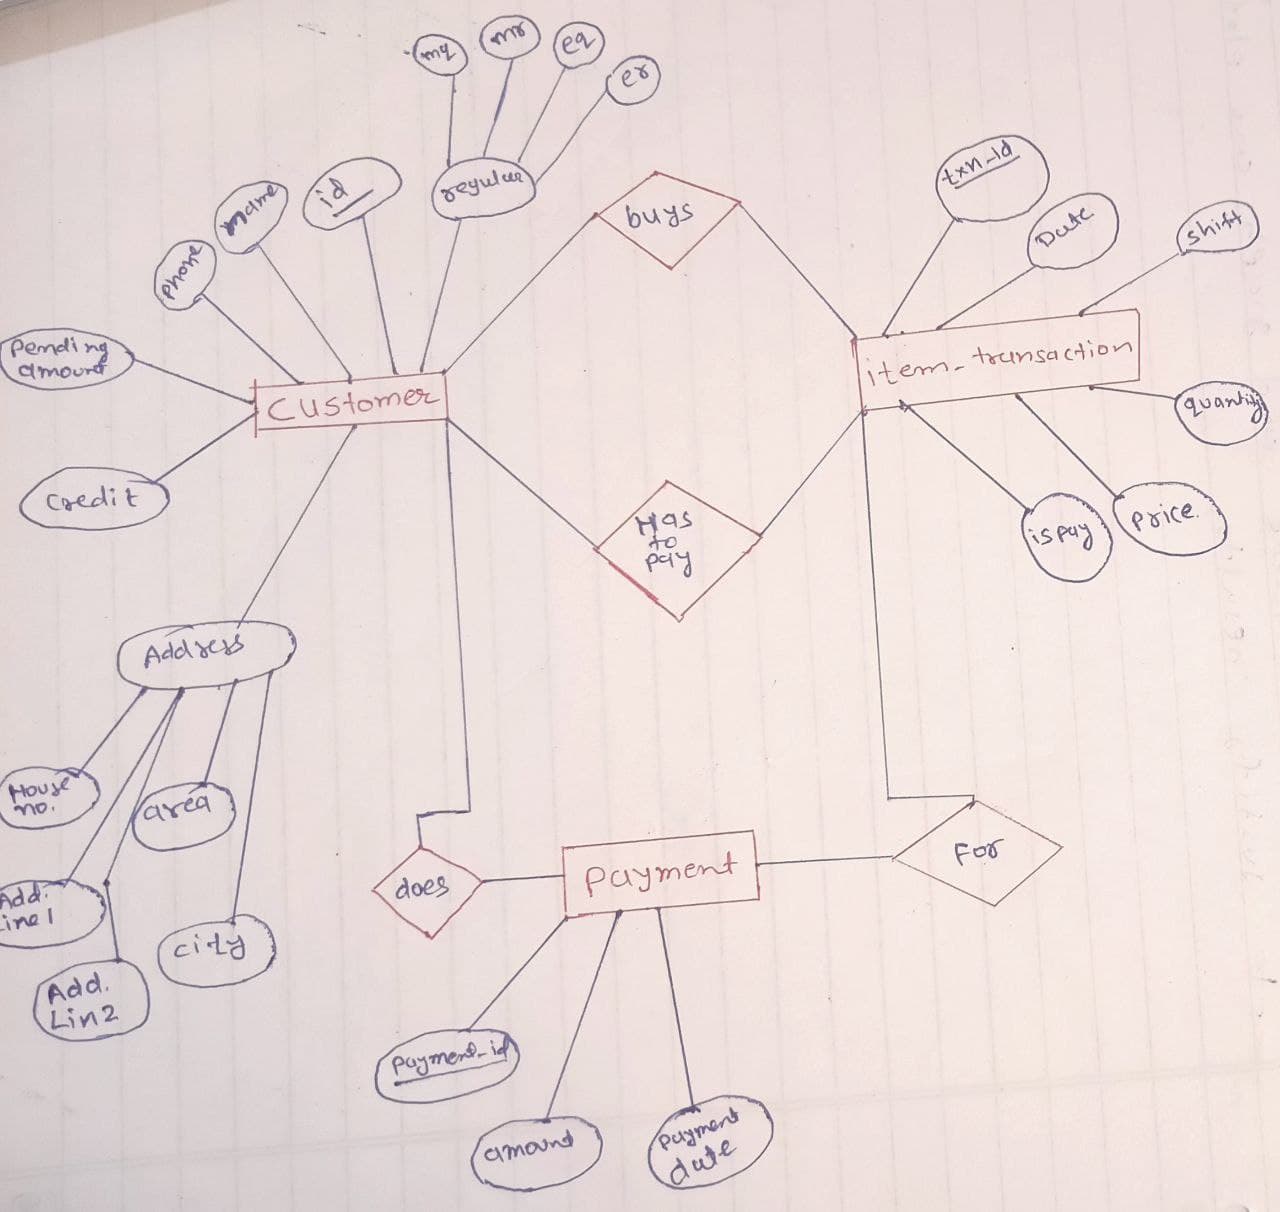 mq
mr
eq
er
regular
id
name
phone
Pending
amount
Credit
Customer
buys
txn_Id
Date
shift
item_transaction
quantity
price.
ispay
Has
to
pay
Address
House
no.
area
Add.
Line1
Add.
Lin2
city
does
payment
For
payment_id
amount
payment
date